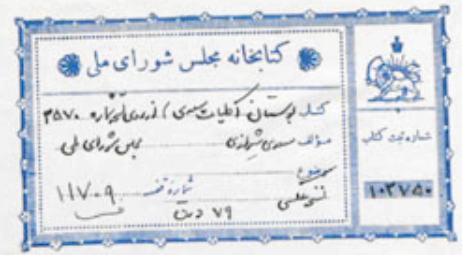 کتابخانه مجلس شورای ملی
کتاب بوستان (کلیات سعدی) از روی شماره ۳۵۷۰
مؤلف سعدی شیرازی مجلس شورای ملی
موضوع
شماره قفسه ۱۱۷۰۹
نسخه عکسی
۷۹
شماره ثبت کتاب
۱۰۳۷۵۰